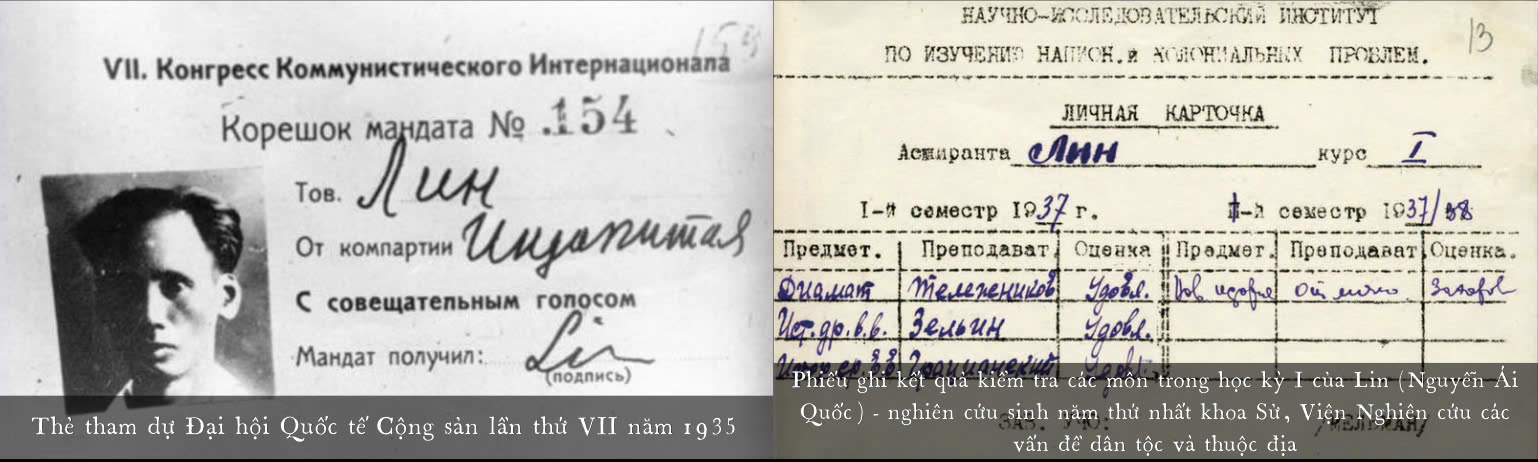 VII. Конгресс Коммунистического Интернационала
Корешок мандата № .154
Тов. Лин
От компартии Индокитая
С совещательным голосом
Мандат получил: Lin
(подпись)
Thẻ tham dự Đại hội Quốc tế Cộng sản lần thứ VII năm 1935
13
НАУЧНО-ИССЛЕДОВАТЕЛЬСКИЙ ИНСТИТУТ
ПО ИЗУЧЕНИЮ НАЦИОН. и КОЛОНИАЛЬНЫХ ПРОБЛЕМ.
ЛИЧНАЯ КАРТОЧКА
Аспиранта Лин курс I
I-й семестр 1937 г. II-й семестр 1937/38
Предмет. Преподават. Оценка Предмет. Преподават. Оценка.
Диамат Удовл.
Ист.др.в. Зельин Удовл.
Удовл.
Phiếu ghi kết quả kiểm tra các môn trong học kỳ I của Lin (Nguyễn Ái
Quốc) - nghiên cứu sinh năm thứ nhất khoa Sử, Viện Nghiên cứu các
vấn đề dân tộc và thuộc địa
ЗАВ. УЧО: /МЕЛЬМАН/